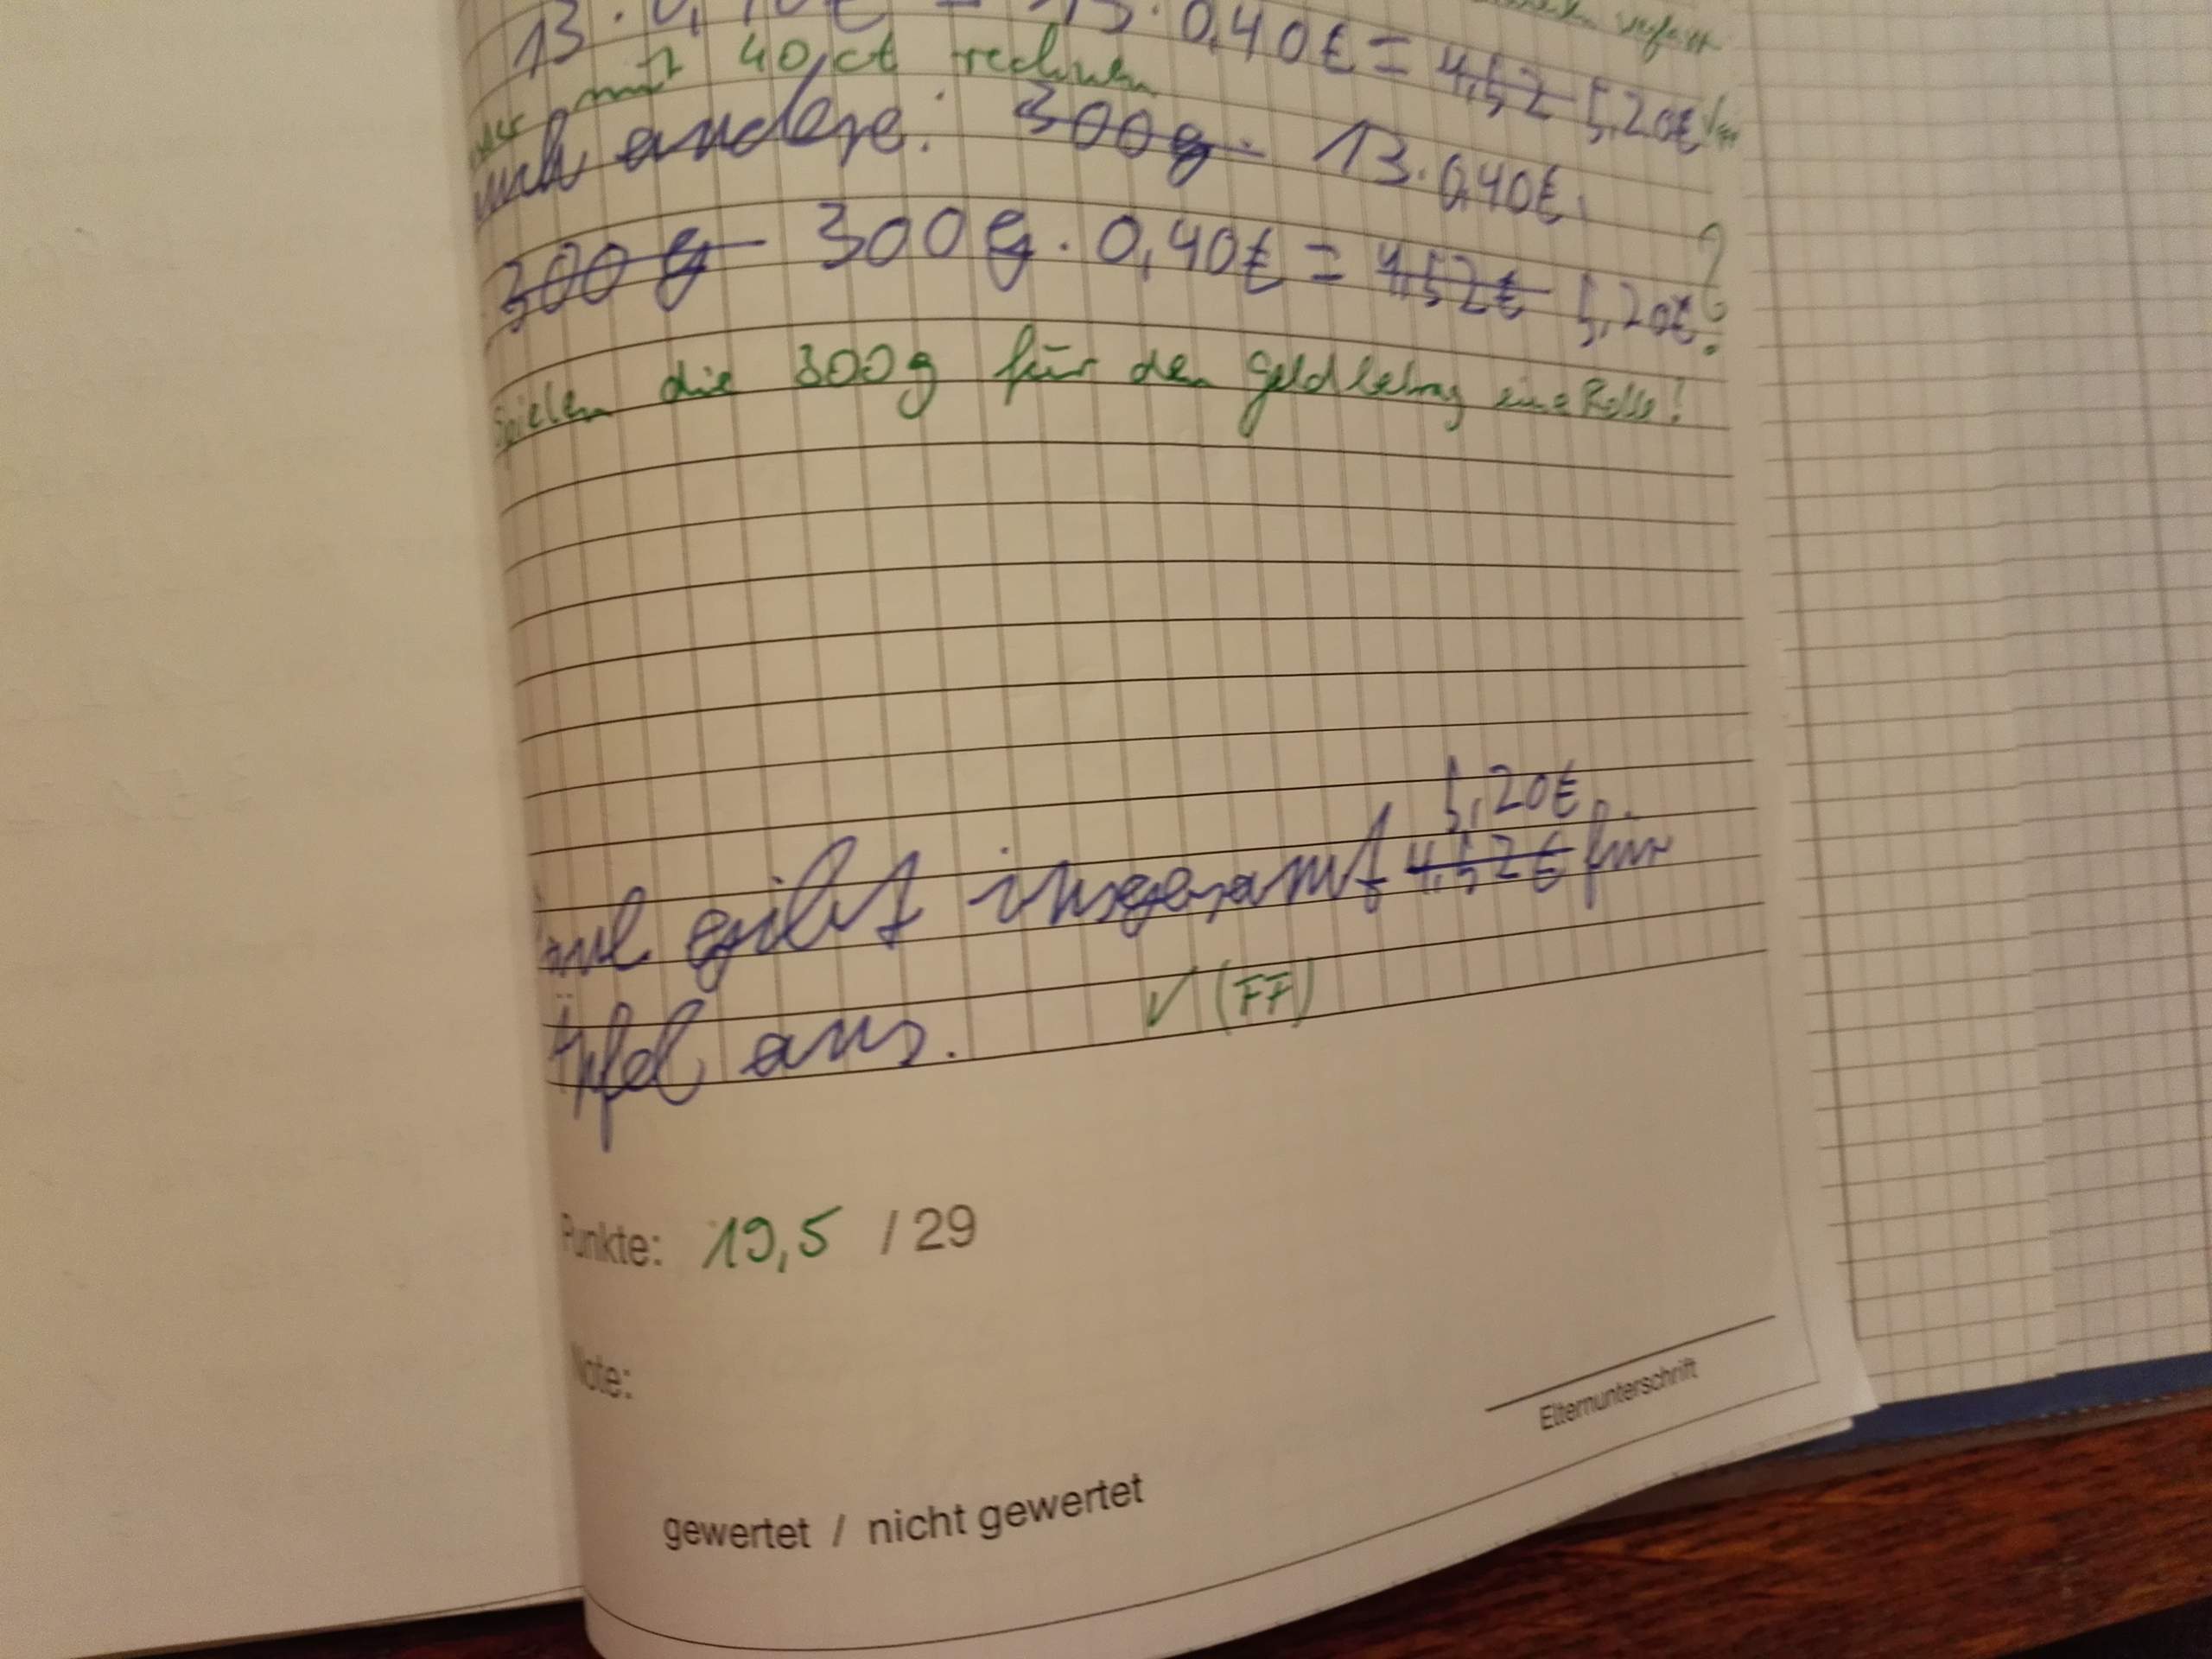 13 · 0,40€ = 13 · 0,40€ = 4,52 5,20€ ✓
oder mit 40 ct rechnen
andere: 300g · 13 · 0,40€
300g 300g · 0,40€ = 4,52€ 5,20€ ?
Spielen die 300g für den Geldbetrag eine Rolle?
5,20€
gibt insgesamt 4,52€ für
Äpfel aus. ✓ (FF)
Punkte: 19,5 / 29
Note:
Elternunterschrift
gewertet / nicht gewertet